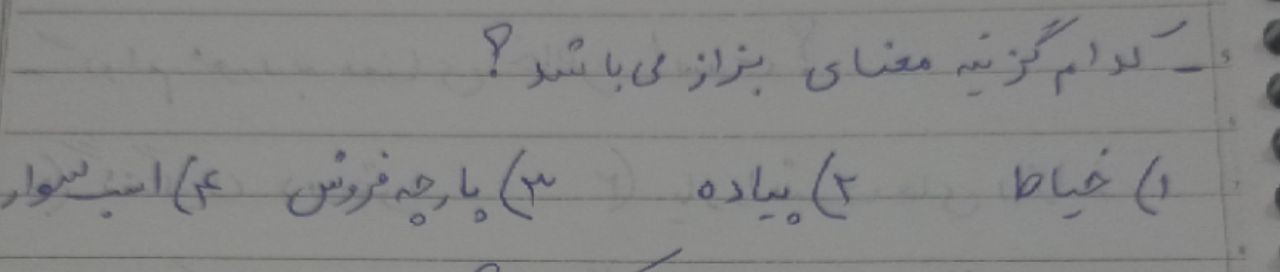 - کدام گزینه معنای بزاز می باشد؟
۱) خیاط ۲) پیاده ۳) پارچه فروش ۴) اسب سوار